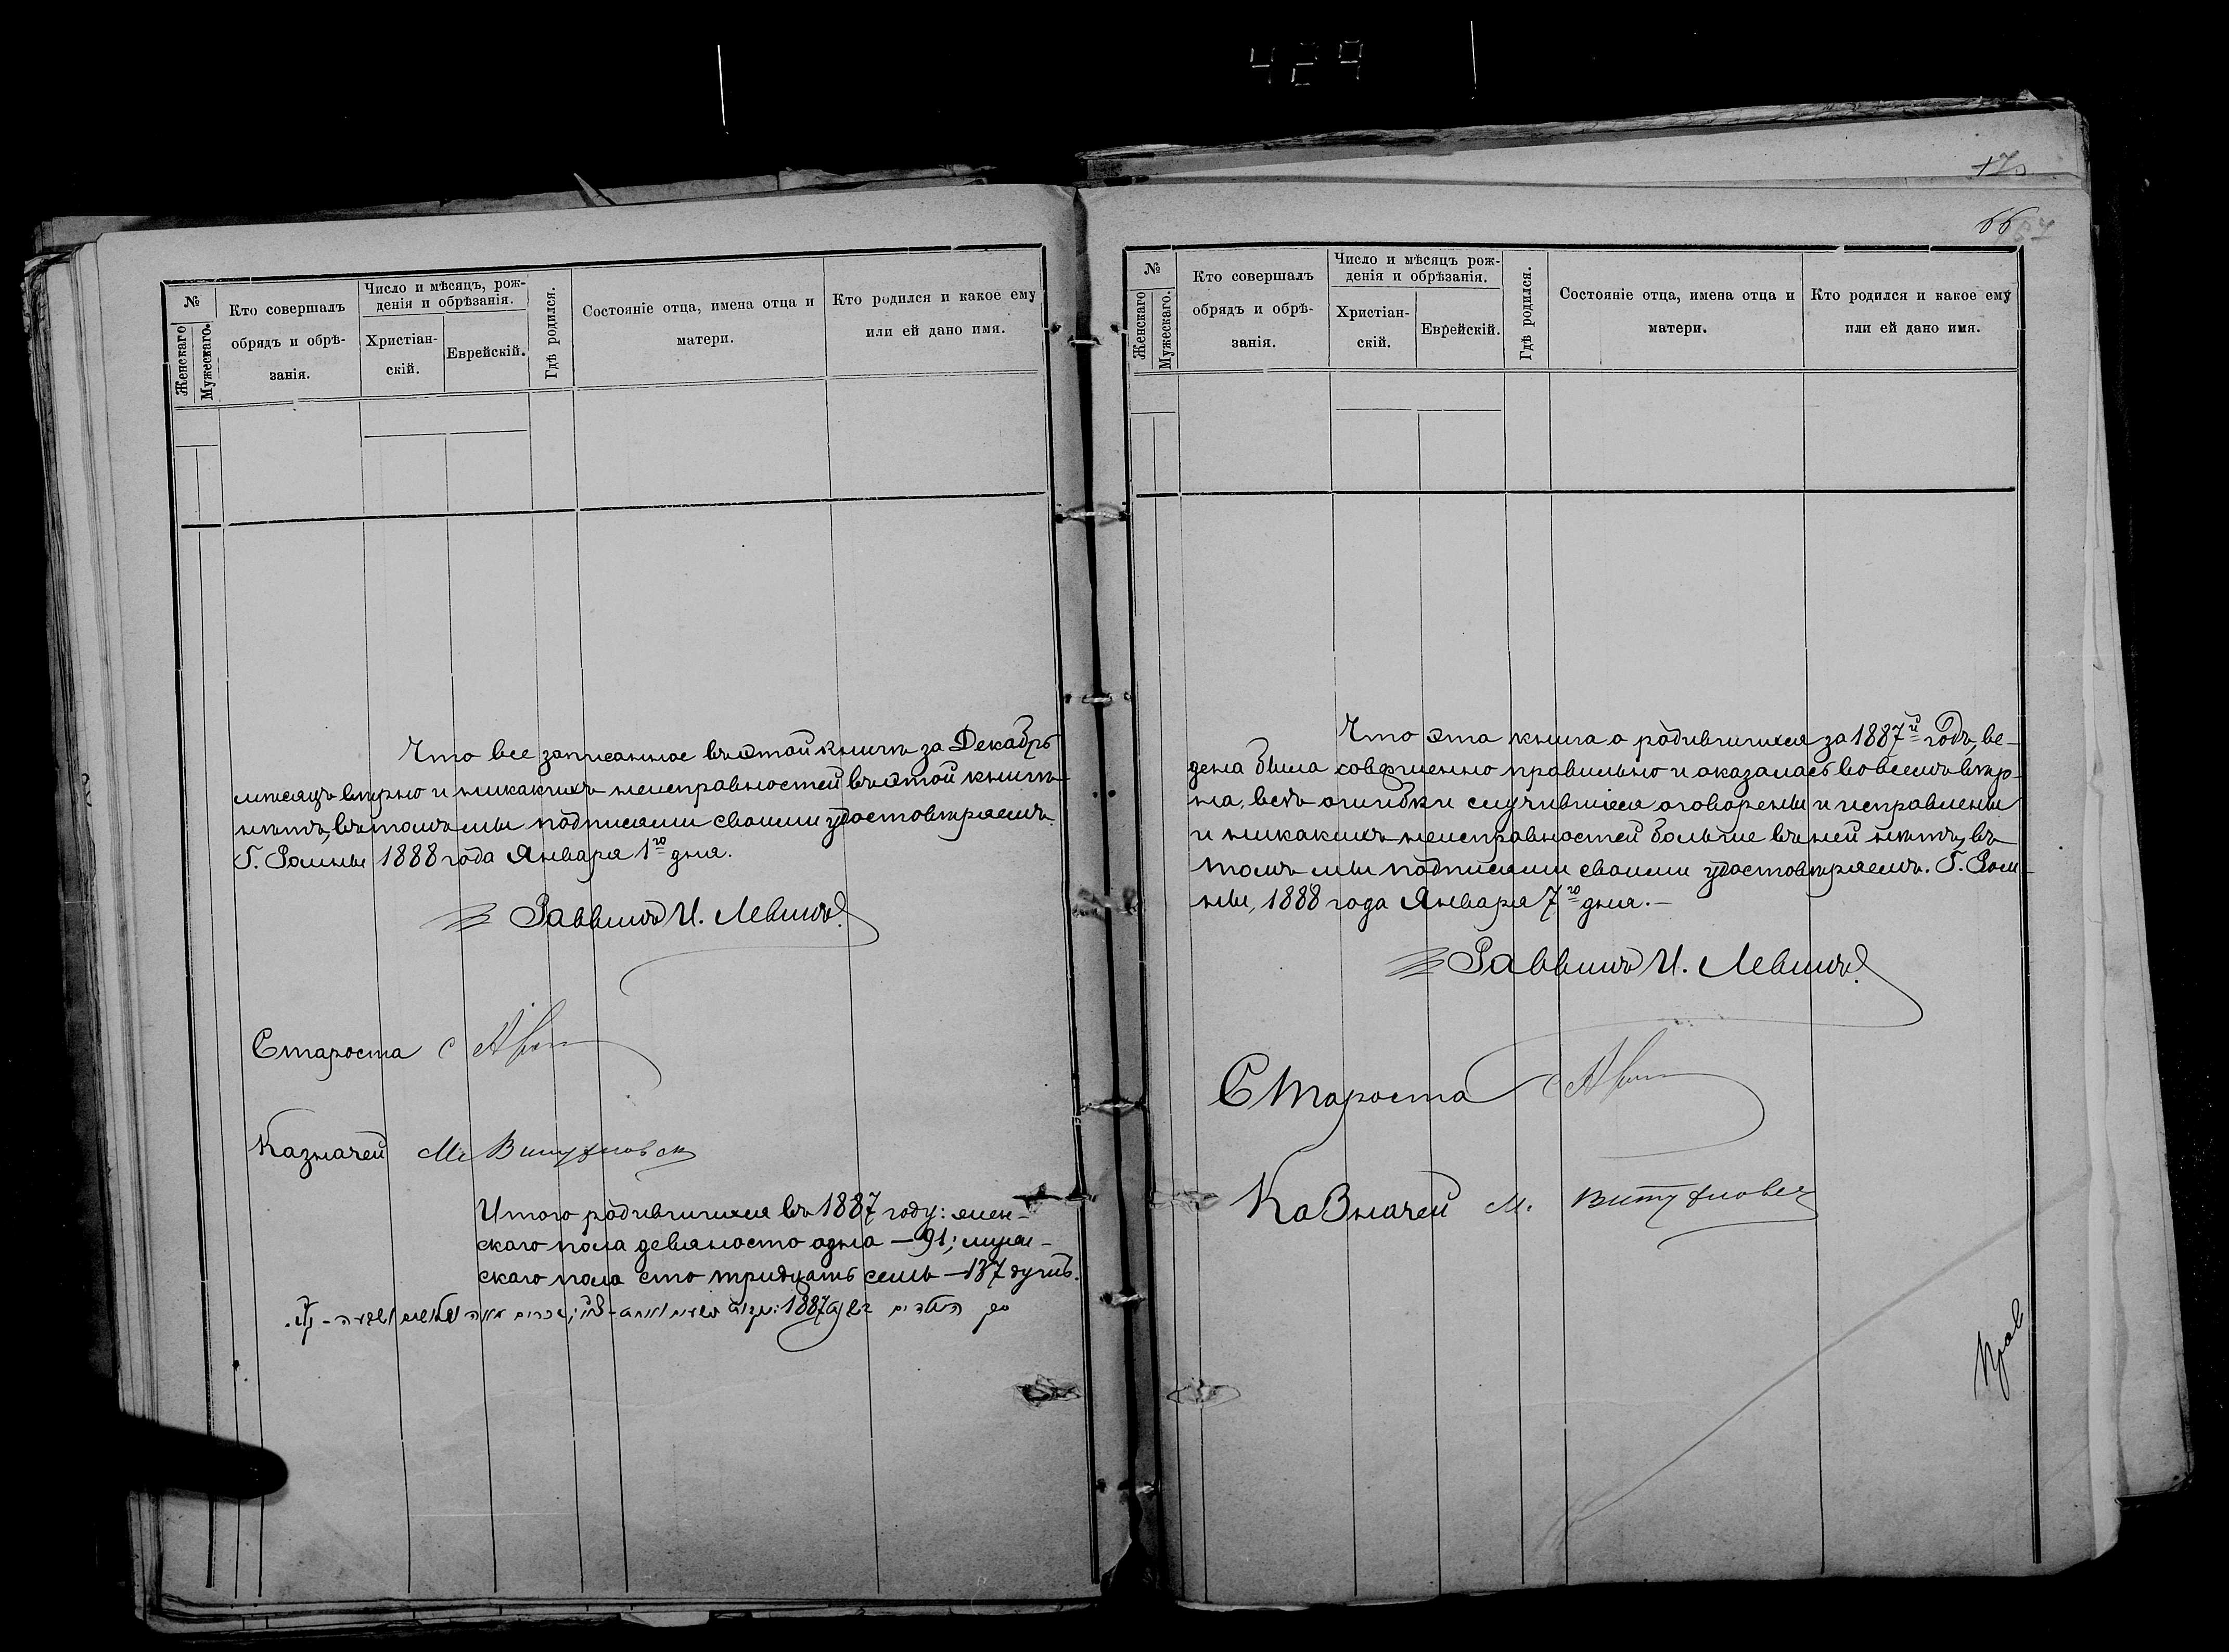 429
170
66
№
Женскаго
Мужескаго.
Кто совершалъ
обрядъ и обрѣ-
занія.
Число и мѣсяцъ, рож-
денія и обрѣзанія.
Христіан-
скій.
Еврейскій.
Гдѣ родился.
Состояніе отца, имена отца и
матери.
Кто родился и какое ему
или ей дано имя.
Что все записанное въ этой книгѣ за Декабрь
мѣсяцъ вѣрно и никакихъ неисправностей въ этой книгѣ
нѣтъ, въ томъ мы подписями своими удостовѣряемъ.
Г. Ромны 1888 года Января 1го дня.
Раввинъ И. Левинъ
Староста
Казначей М.
Итого родившихся въ 1887 году: жен-
скаго пола девяносто одна — 91; муж-
скаго пола сто тридцать семь — 137 душъ.
1887
№
Женскаго
Мужескаго.
Кто совершалъ
обрядъ и обрѣ-
занія.
Число и мѣсяцъ рож-
денія и обрѣзанія.
Христіан-
скій.
Еврейскій.
Гдѣ родился.
Состояніе отца, имена отца и
матери.
Кто родился и какое ему
или ей дано имя.
Что эта книга о родившихся за 1887й годъ, ве-
дена была совершенно правильно и оказалась во всемъ вѣр-
на, всѣ ошибки случившіяся оговорены и исправлены
и никакихъ неисправностей больше въ ней нѣтъ, въ
томъ мы подписями своими удостовѣряемъ. Г. Ром-
ны, 1888 года Января 7го дня.—
Раввинъ И. Левинъ
Староста
Казначей М.